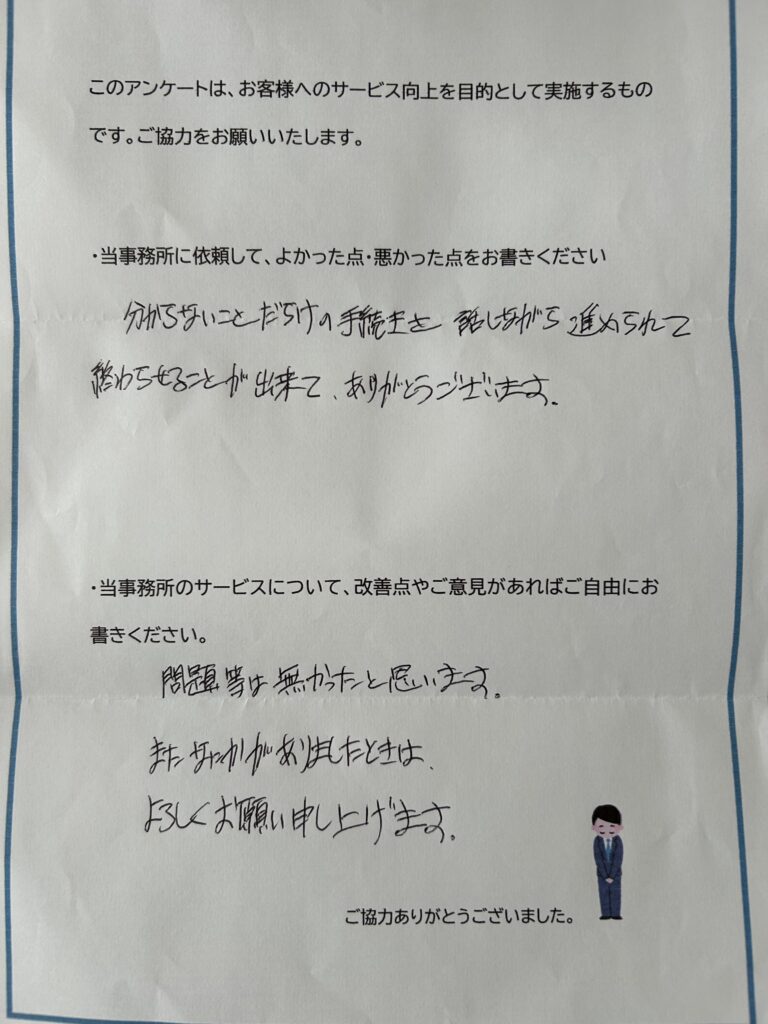 このアンケートは、お客様へのサービス向上を目的として実施するもの
です。ご協力をお願いいたします。
・当事務所に依頼して、よかった点・悪かった点をお書きください
分からないことだらけの手続きを 話しながら 進められて
終わらせることが出来て、ありがとうございます。
・当事務所のサービスについて、改善点やご意見があればご自由にお
書きください。
問題等は無かったと思います。
またなにかがありましたときは、
よろしくお願い申し上げます。
ご協力ありがとうございました。